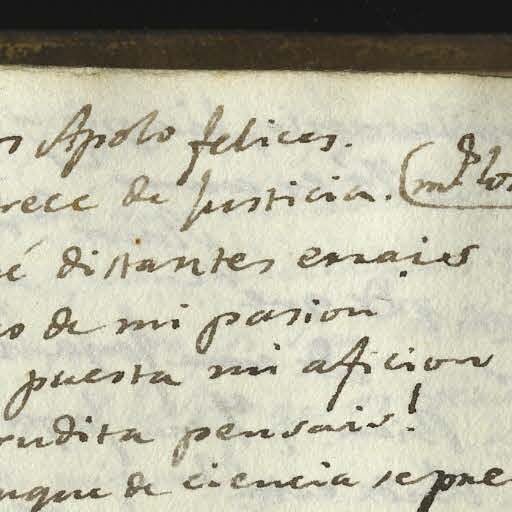 s Apolo felices.
rece de justicia.
é distantes erraies
o de mi pasion
puesta mi aficion
rudita pensais!
nque de ciencia se pre